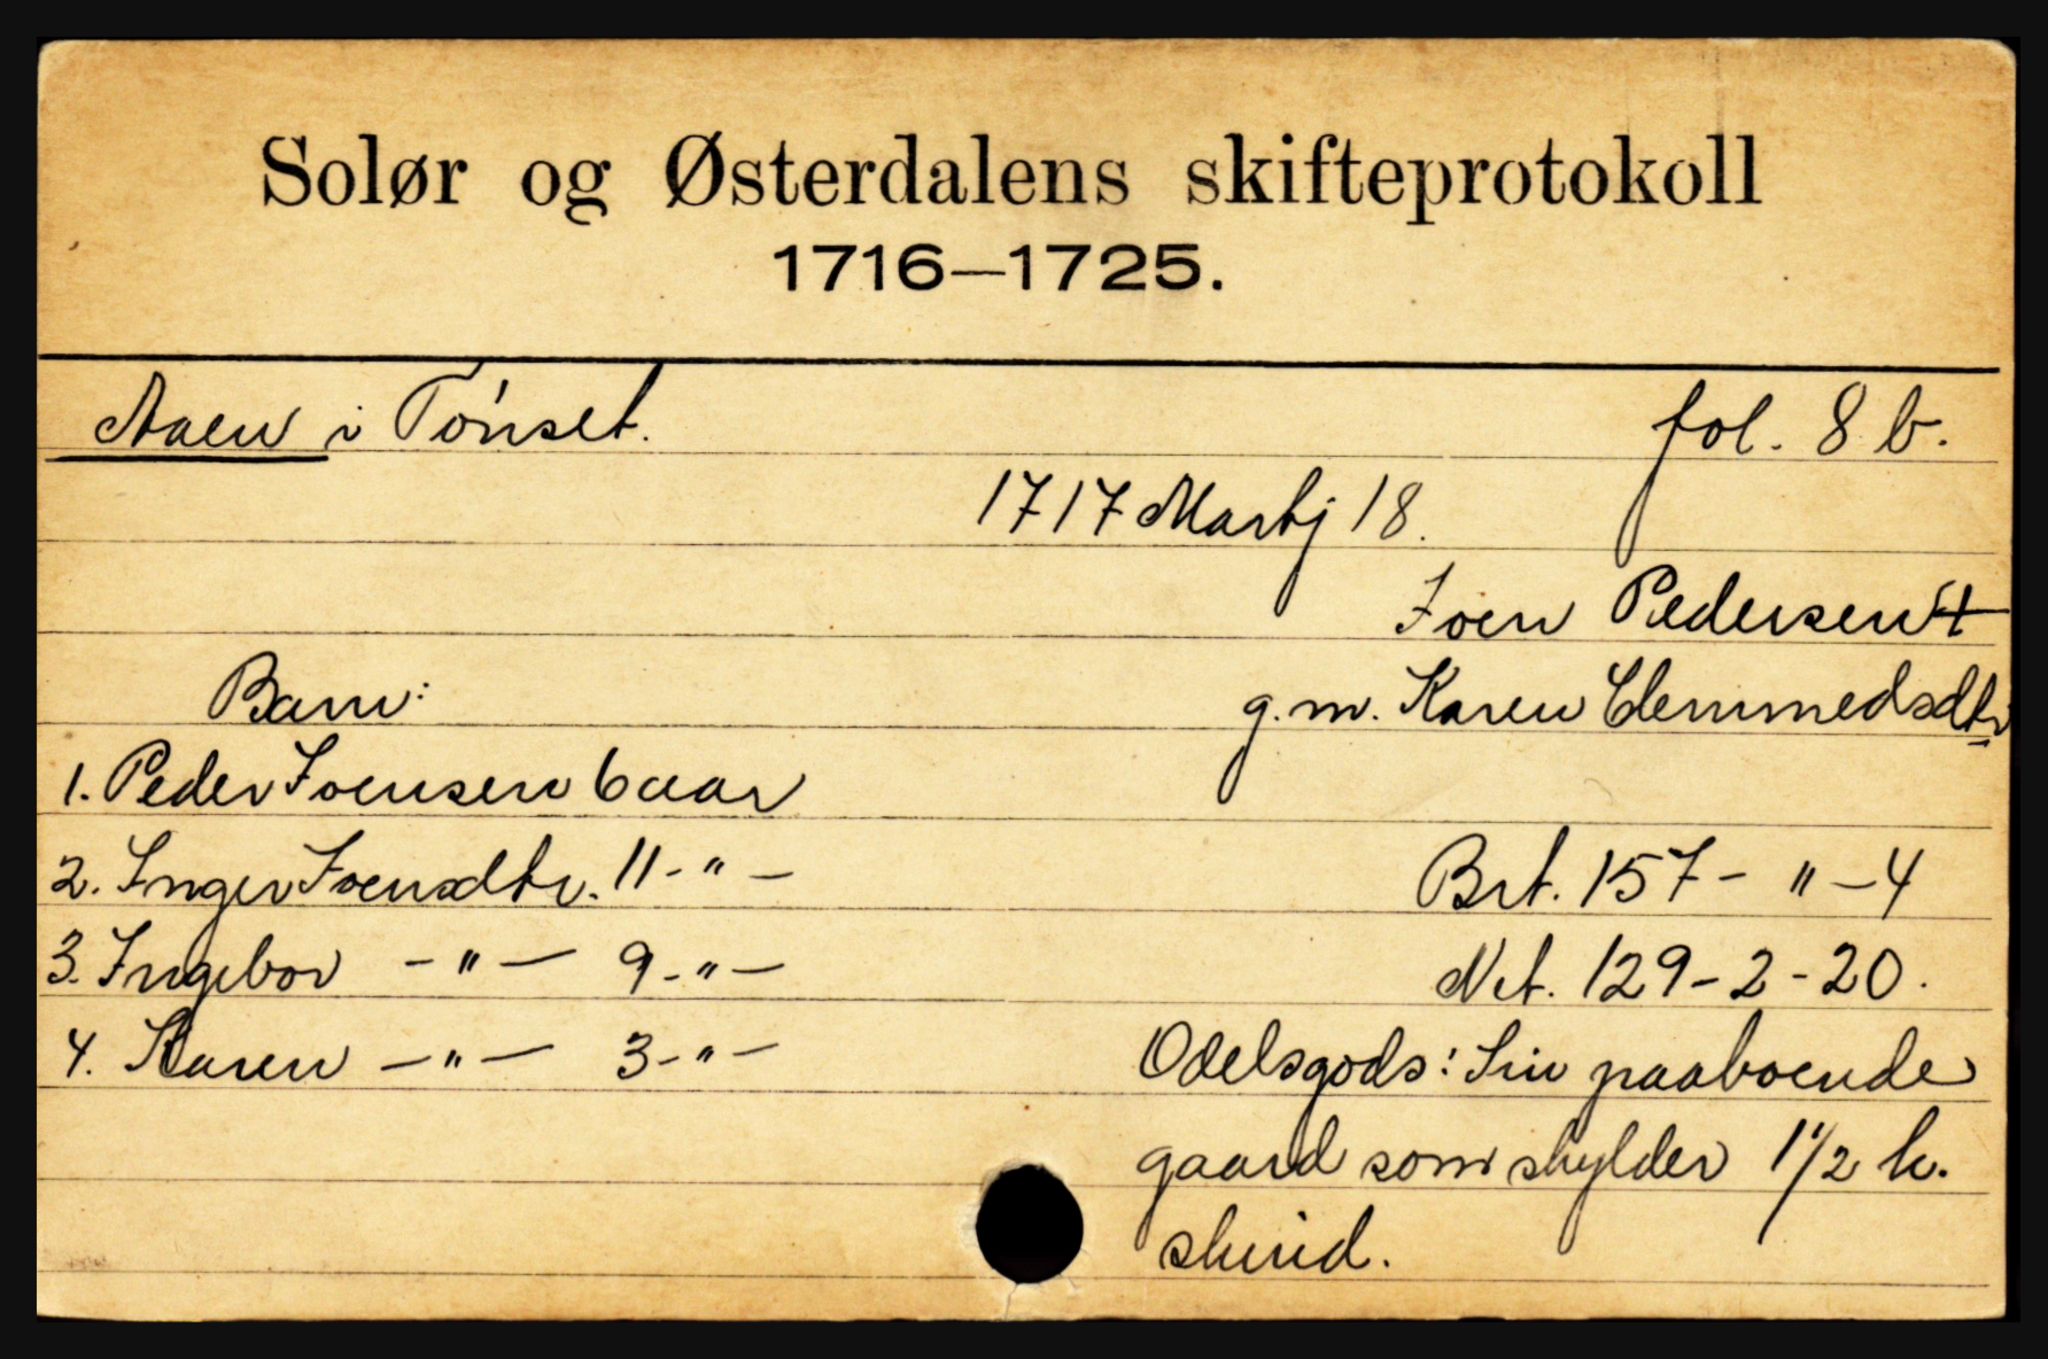 Solør og Østerdalens skifteprotokoll
1716–1725.
Aaen i Tönset. fol. 8 b.
1717 Martj 18.
Joen Pedersen †
g. m. Karen Clemmedsdtr
Barn:
1. Peder Joensen 6 aar
2. Inger Joensdtr. 11 - " -
3. Ingebor - " - 9 - " -
4. Karen - " - 3 - " -
Brt. 157 - " - 4
Net. 129 - 2 - 20.
Odelsgods: Sin paaboende
gaard som skylder 1 1/2 k.
skind.